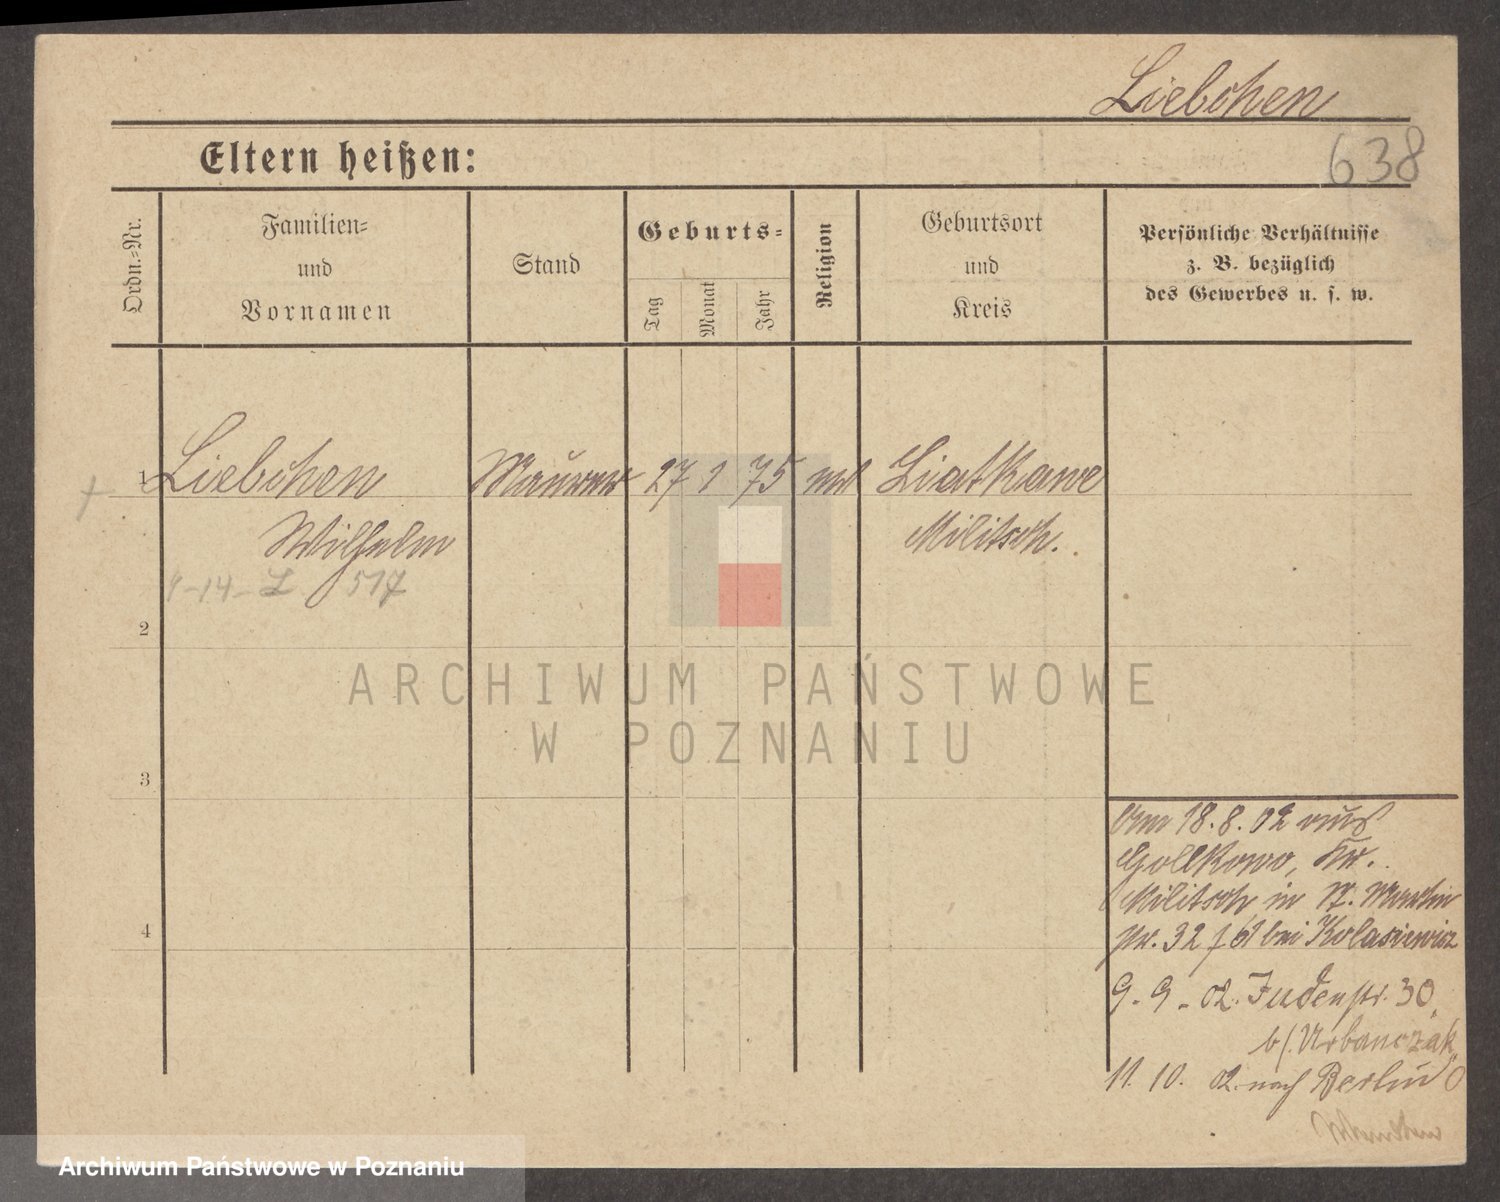 Liebchen
Eltern heißen:
638
Ordn.-Nr.
Familien-
und
Vornamen
Stand
Geburts-
Tag
Monat
Jahr
Religion
Geburtsort
und
Kreis
Persönliche Verhältnisse
z. B. bezüglich
des Gewerbes u. s. w.
1 Liebchen Maurer 27 1 75 Liatkawe
Wilhelm Militsch.
14 - L 517
2
3
4
Am 18.8.02 aus
Gollkowo, Kr.
Militsch, in St. Martin
str. 32 bei Kolasiewicz
9. 9. 02. Judenstr. 30
b/. Urbanczak
11. 10. 02. nach Berlin
ARCHIWUM PAŃSTWOWE
W POZNANIU
Archiwum Państwowe w Poznaniu